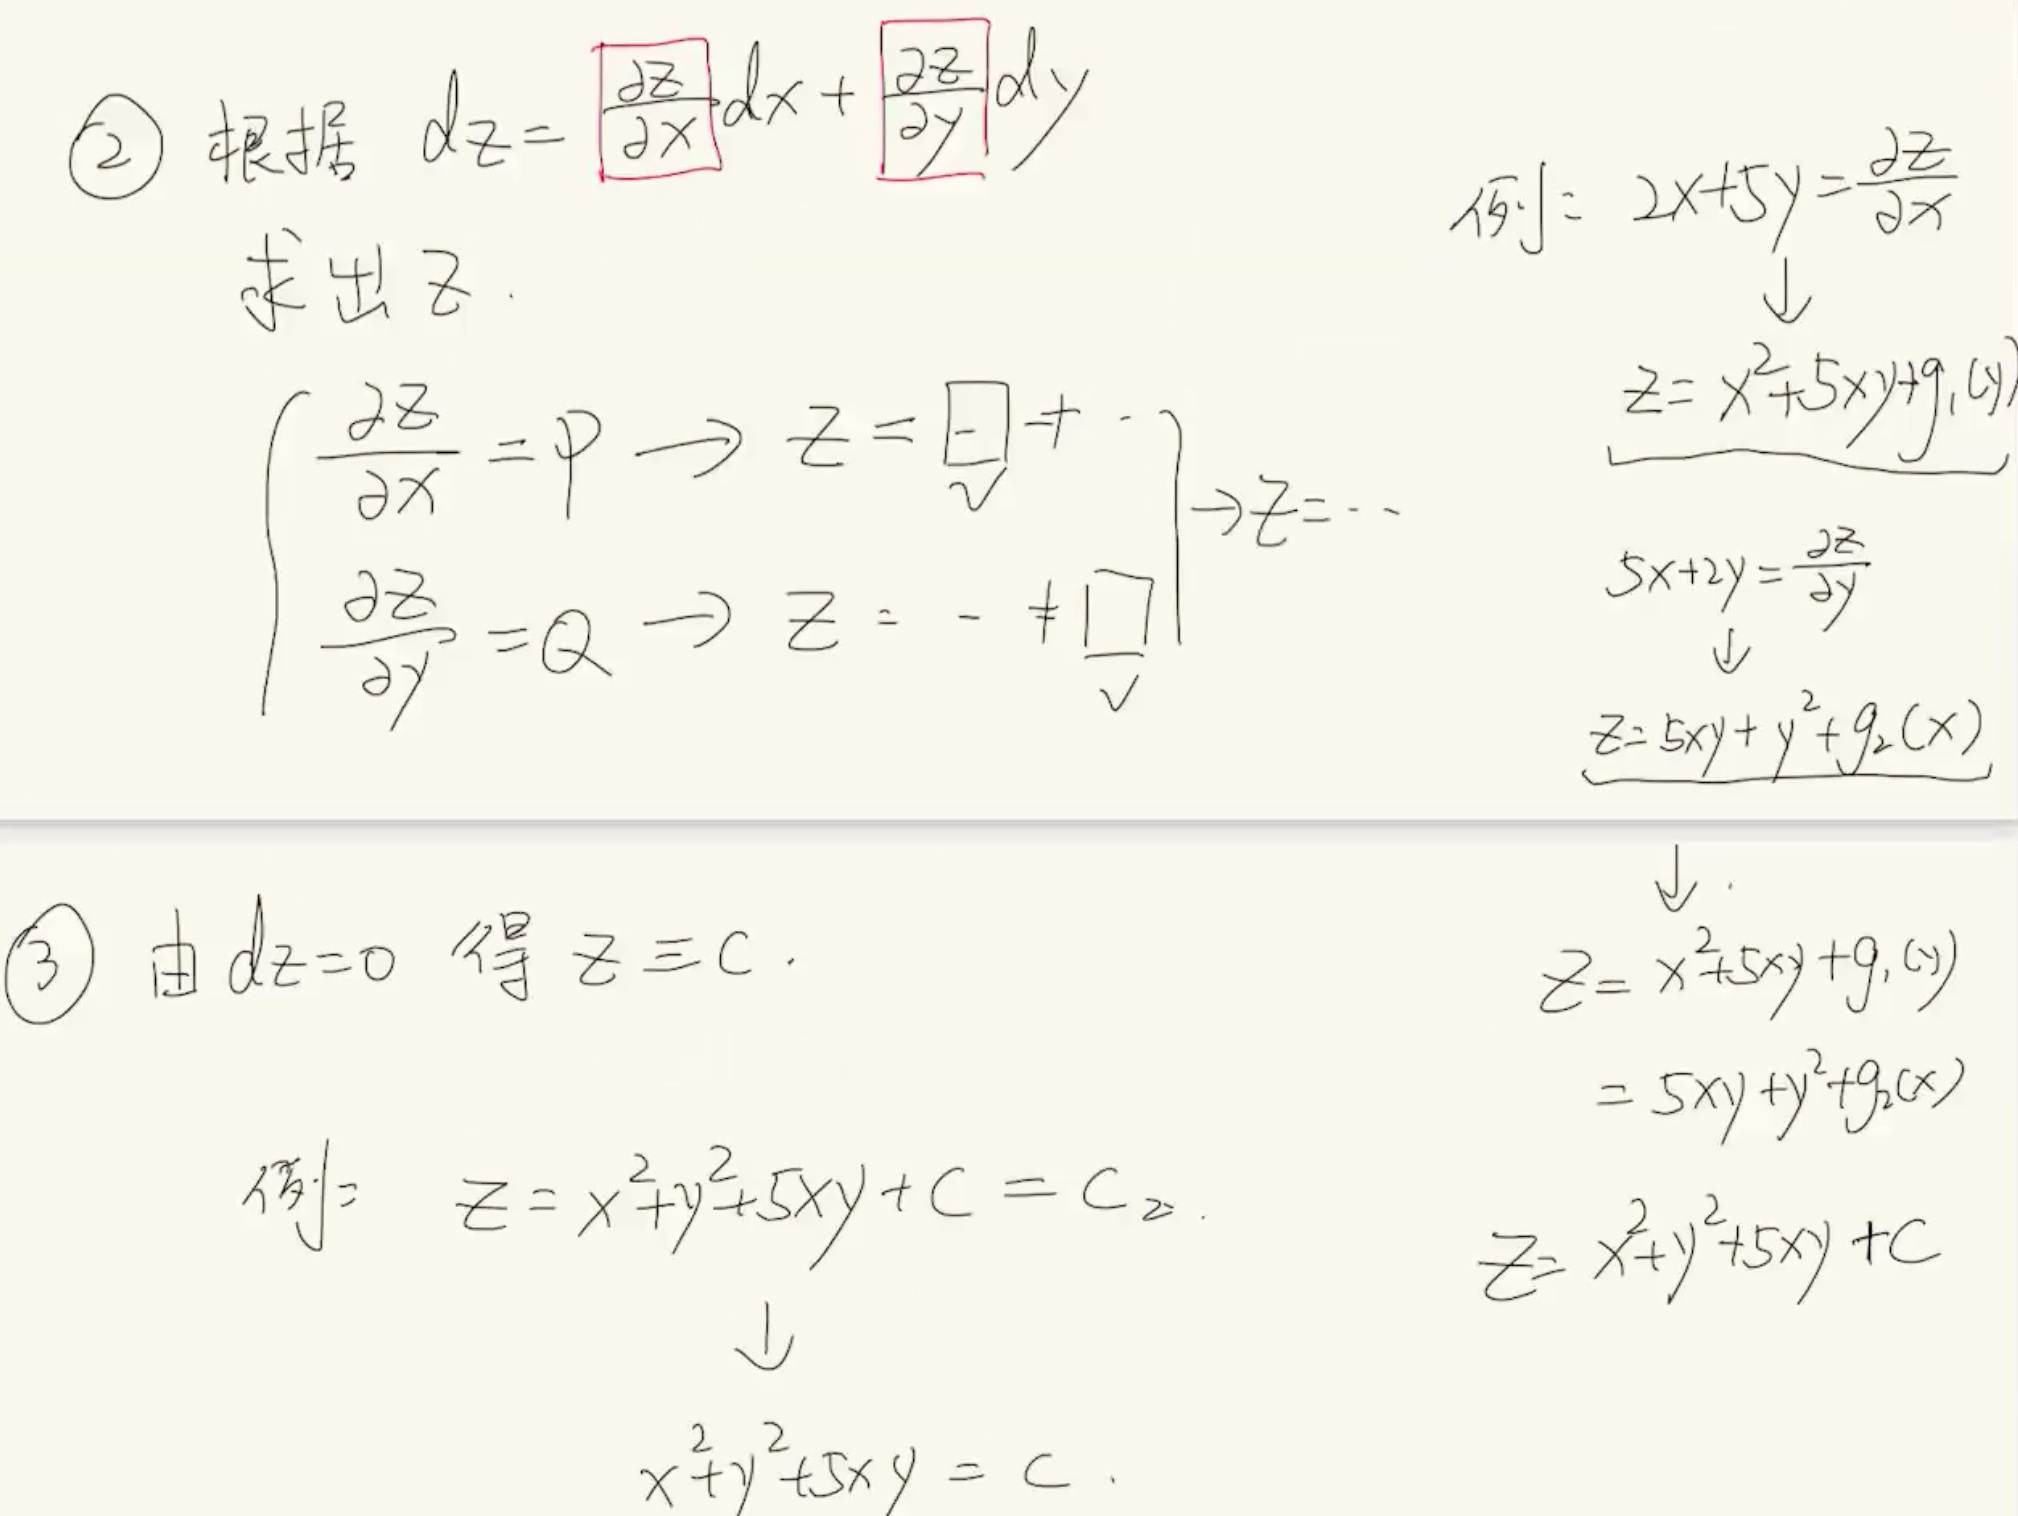 ② 根据 dz = ∂z/∂x dx + ∂z/∂y dy
求出 z.
∂z/∂x = P → z = □ + ··
∂z/∂y = Q → z = - + □
→ z = ···
例: 2x+5y = ∂z/∂x
↓
z = x²+5xy+g₁(y)
5x+2y = ∂z/∂y
↓
z = 5xy+y²+g₂(x)
↓
z = x²+5xy+g₁(y)
= 5xy+y²+g₂(x)
z = x²+y²+5xy+C
③ 由 dz=0 得 z ≡ C.
例: z = x²+y²+5xy+C = C₂.
↓
x²+y²+5xy = C.